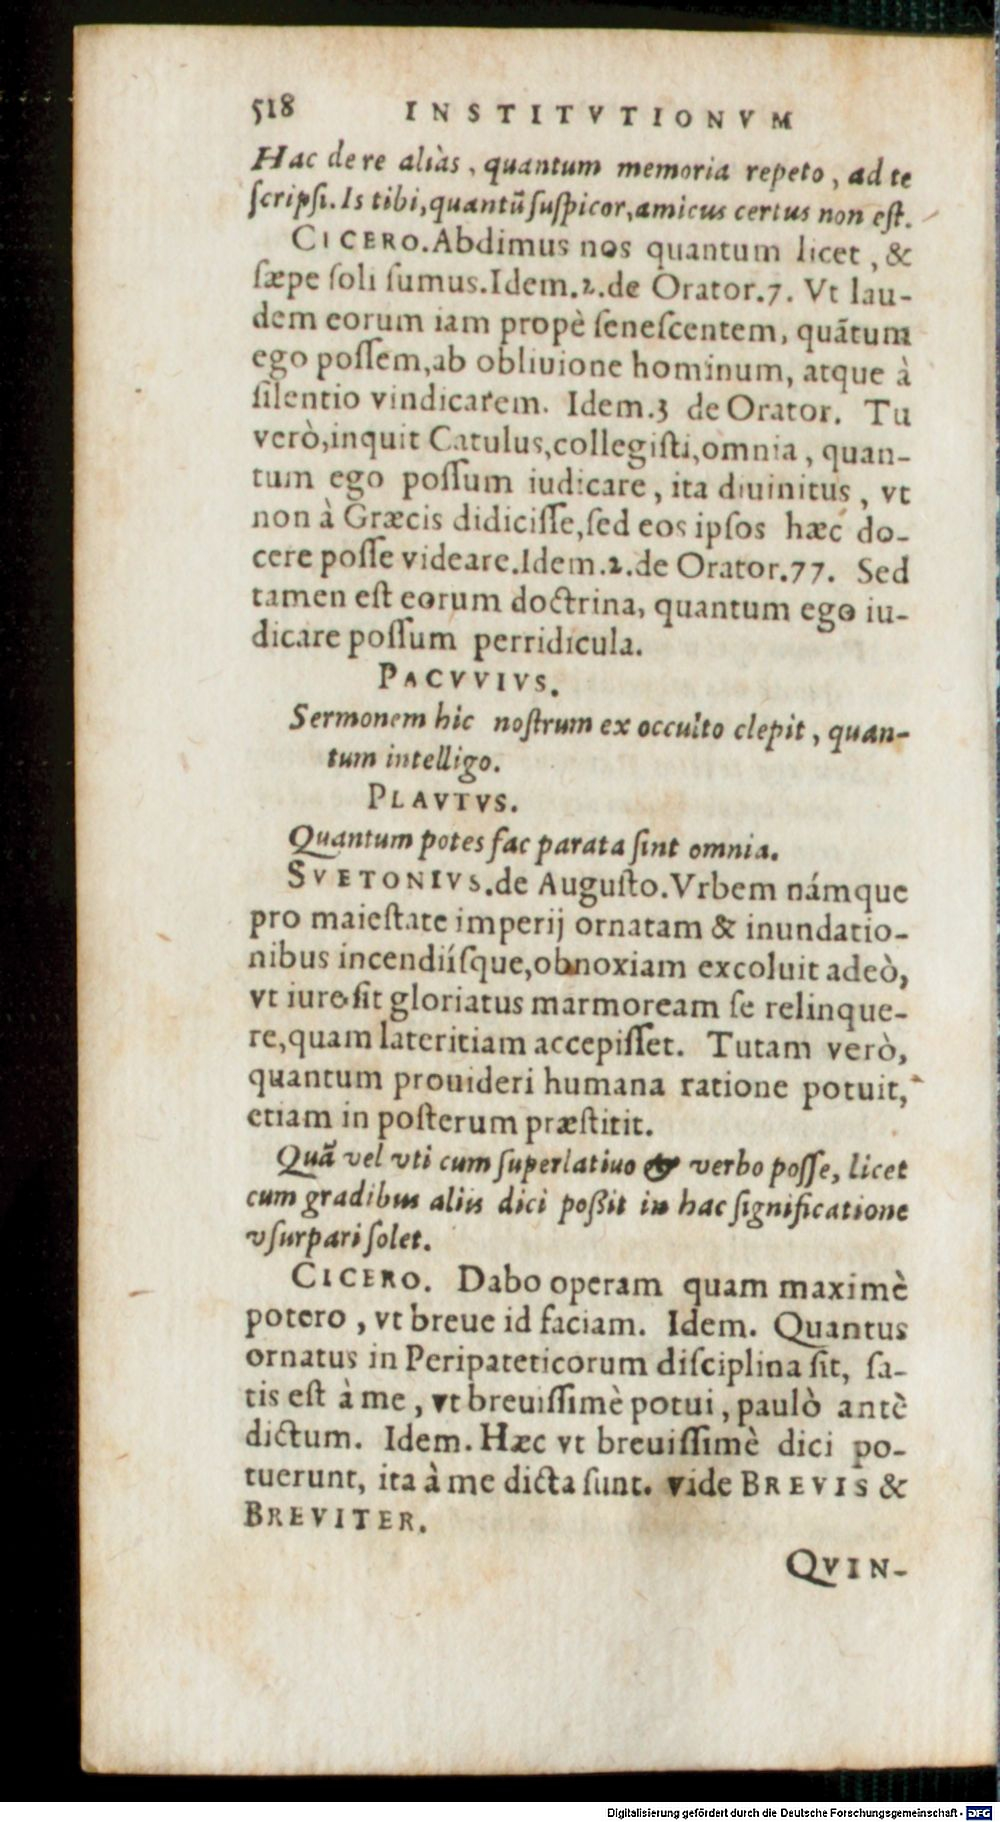 518 INSTITVTIONVM
Hac de re aliàs, quantum memoria repeto, ad te
ſcripſi. Is tibi, quantũ ſuſpicor, amicus certus non eſt.
CICERO. Abdimus nos quantum licet, &
ſæpe ſoli ſumus. Idem. 2. de Orator. 7. Vt lau-
dem eorum iam propè ſeneſcentem, quãtum
ego poſſem, ab obliuione hominum, atque à
ſilentio vindicarem. Idem. 3 de Orator. Tu
verò, inquit Catulus, collegiſti, omnia, quan-
tum ego poſſum iudicare, ita diuinitus, vt
non à Græcis didiciſſe, ſed eos ipſos hæc do-
cere poſſe videare. Idem. 2. de Orator. 77. Sed
tamen eſt eorum doctrina, quantum ego iu-
dicare poſſum perridicula.
PACVVIVS.
Sermonem hic noſtrum ex occulto clepit, quan-
tum intelligo.
PLAVTVS.
Quantum potes fac parata ſint omnia.
SVETONIVS. de Auguſto. Vrbem námque
pro maieſtate imperij ornatam & inundatio-
nibus incendiíſque, obnoxiam excoluit adeò,
vt iure ſit gloriatus marmoream ſe relinque-
re, quam lateritiam accepiſſet. Tutam verò,
quantum prouideri humana ratione potuit,
etiam in poſterum præſtitit.
Quã vel vti cum ſuperlatiuo & verbo poſſe, licet
cum gradibus aliis dici poßit in hac ſignificatione
vſurpari ſolet.
CICERO. Dabo operam quam maximè
potero, vt breue id faciam. Idem. Quantus
ornatus in Peripateticorum diſciplina ſit, ſa-
tis eſt à me, vt breuiſſimè potui, paulò antè
dictum. Idem. Hæc vt breuiſſimè dici po-
tuerunt, ita à me dicta ſunt. vide BREVIS &
BREVITER.
QVIN-
Digitalisierung gefördert durch die Deutsche Forschungsgemeinschaft - DFG